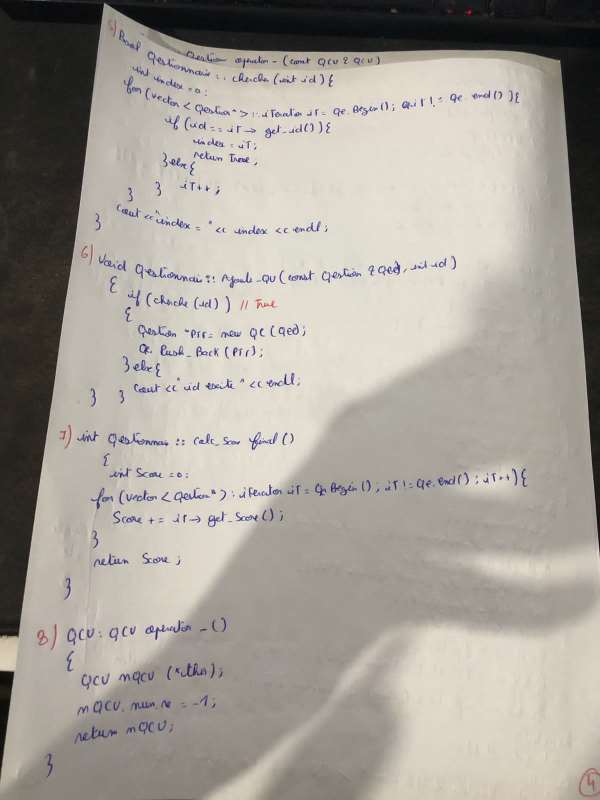 Question operator-(const QCU & QCU)
5) Bool Questionnair:: cherche (int id){
int index=0;
for (vector<Question*>::iterator it= Qe.Begin(); it != Qe.end()){
if (id== it→ get_id()){
index = iT;
return True;
}else{
iT++;
} }
cout <<"index = "<< index << endl;
}
6) Void Questionnair:: Ajoute_QU (const Question & Qed, int id)
{ if (cherche (id)) // True
{
Question *PTr= new QC (Qed);
Qe. Push_Back (PTr);
}else{
cout <<" id existe " << endl;
} }
7) int Questionnair:: calc_Scor final()
{
int Score=0;
for (vector<Question*>::iterator iT= Qe.Begin(); iT!=Qe.end(); iT++){
Score += iT→ get_Score();
}
return Score;
}
8) QCU: QCU operator_()
{
QCU nQCU (*this);
nQCU. num_re = -1;
return nQCU;
}
4